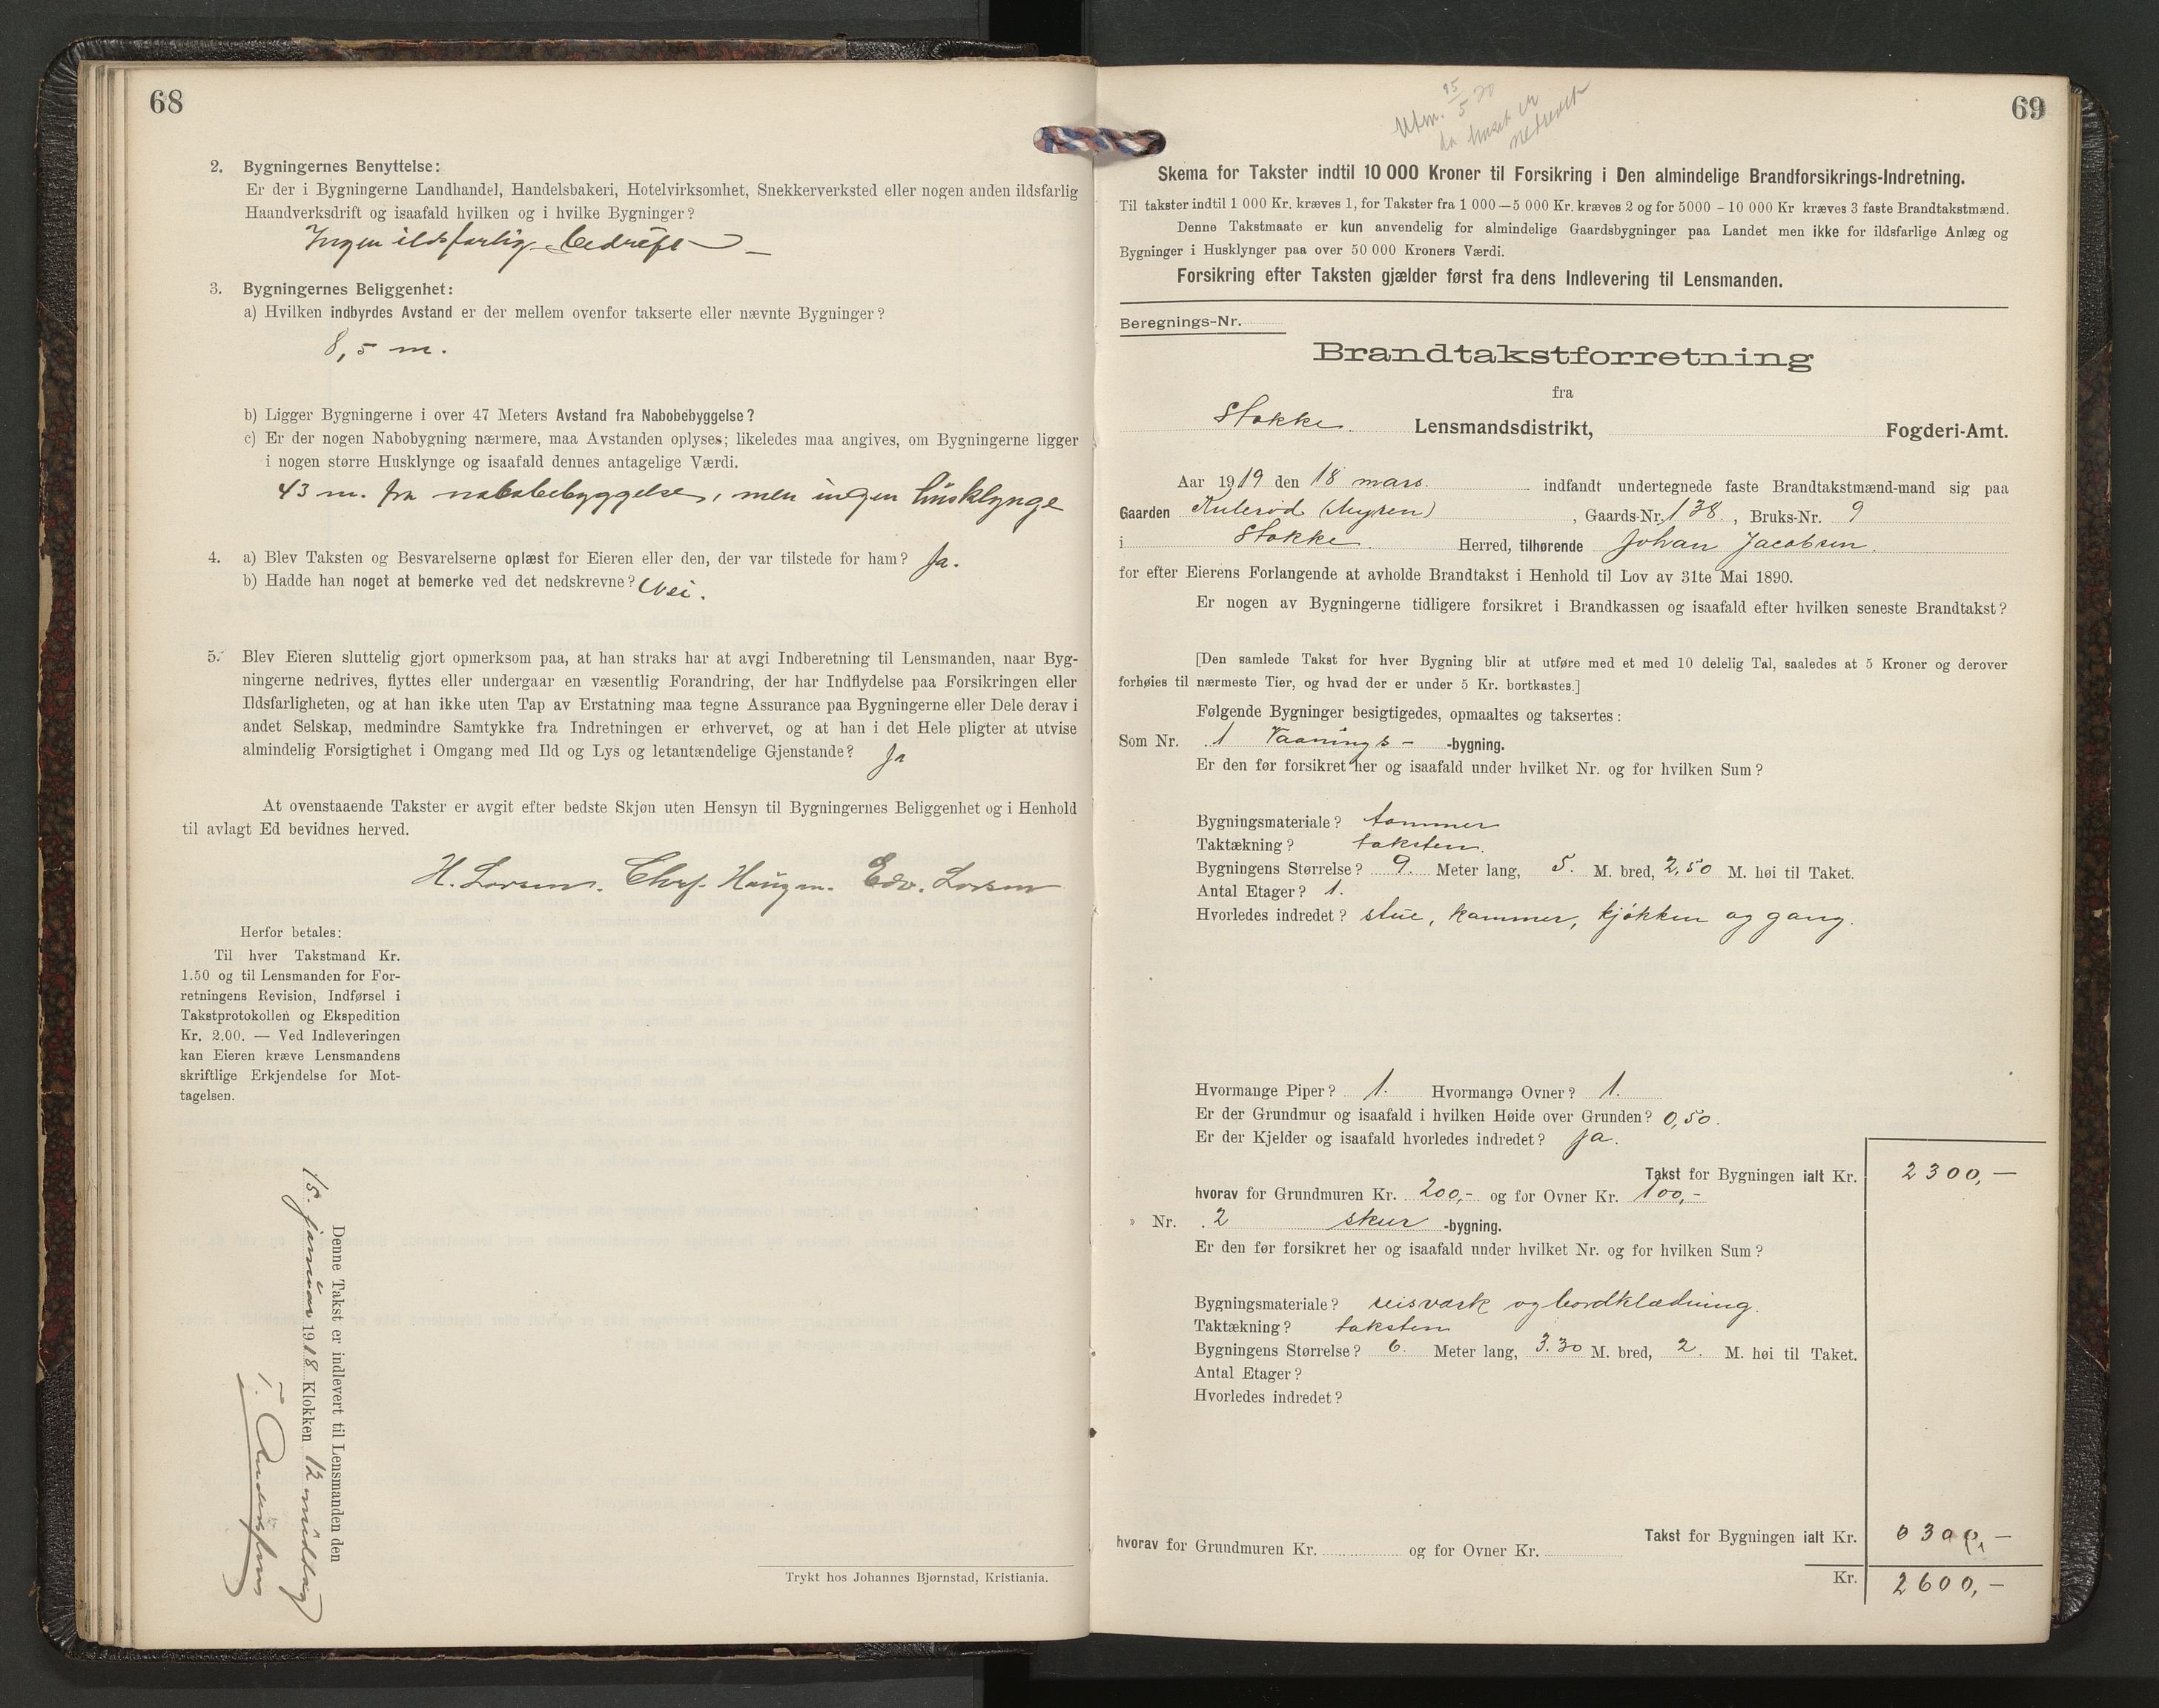 68
2. Bygningernes Benyttelse:
Er der i Bygningerne Landhandel, Handelsbakeri, Hotelvirksomhet, Snekkerverksted eller nogen anden ildsfarlig
Haandverksdrift og isaafald hvilken og i hvilke Bygninger?
Ingen ildsfarlig bedrift –
3. Bygningernes Beliggenhet:
a) Hvilken indbyrdes Avstand er der mellem ovenfor takserte eller nævnte Bygninger?
8,5 m.
b) Ligger Bygningerne i over 47 Meters Avstand fra Nabobebyggelse?
c) Er der nogen Nabobygning nærmere, maa Avstanden oplyses; likeledes maa angives, om Bygningerne ligger
i nogen større Husklynge og isaafald dennes antagelige Værdi.
43 m. fra nabobebyggelse, men ingen husklynge
4. a) Blev Taksten og Besvarelserne oplæst for Eieren eller den, der var tilstede for ham? Ja.
b) Hadde han noget at bemerke ved det nedskrevne? Nei.
5. Blev Eieren sluttelig gjort opmerksom paa, at han straks har at avgi Indberetning til Lensmanden, naar Byg-
ningerne nedrives, flyttes eller undergaar en væsentlig Forandring, der har Indflydelse paa Forsikringen eller
Ildsfarligheten, og at han ikke uten Tap av Erstatning maa tegne Assurance paa Bygningerne eller Dele derav i
andet Selskap, medmindre Samtykke fra Indretningen er erhvervet, og at han i det Hele pligter at utvise
almindelig Forsigtighet i Omgang med Ild og Lys og letantændelige Gjenstande? Ja
At ovenstaaende Takster er avgit efter bedste Skjøn uten Hensyn til Bygningernes Beliggenhet og i Henhold
til avlagt Ed bevidnes herved.
H. Larsen. Chr. Haugen. Edv. Larsen
Herfor betales:
Til hver Takstmand Kr.
1.50 og til Lensmanden for For-
retningens Revision, Indførsel i
Takstprotokollen og Ekspedition
Kr. 2.00. — Ved Indleveringen
kan Eieren kræve Lensmandens
skriftlige Erkjendelse for Mot-
tagelsen.
Denne Takst er indlevert til Lensmanden den
15. januar 1918 Klokken 12 middag
Trykt hos Johannes Bjørnstad, Kristiania.
69
Utm. 25/5 20
da huset er
nedrevet
Skema for Takster indtil 10 000 Kroner til Forsikring i Den almindelige Brandforsikrings-Indretning.
Til takster indtil 1 000 Kr. kræves 1, for Takster fra 1 000—5 000 Kr. kræves 2 og for 5000 – 10 000 Kr kræves 3 faste Brandtakstmænd.
Denne Takstmaate er kun anvendelig for almindelige Gaardsbygninger paa Landet men ikke for ildsfarlige Anlæg og
Bygninger i Husklynger paa over 50 000 Kroners Værdi.
Forsikring efter Taksten gjælder først fra dens Indlevering til Lensmanden.
Beregnings-Nr.
Brandtakstforretning
fra
Stokke Lensmandsdistrikt, Fogderi-Amt.
Aar 1919 den 18 mars. indfandt undertegnede faste Brandtakstmænd-mand sig paa
Gaarden Rulerød (Myren), Gaards-Nr. 138., Bruks-Nr. 9
i Stokke Herred, tilhørende Johan Jacobsen.
for efter Eierens Forlangende at avholde Brandtakst i Henhold til Lov av 31te Mai 1890.
Er nogen av Bygningerne tidligere forsikret i Brandkassen og isaafald efter hvilken seneste Brandtakst?
[Den samlede Takst for hver Bygning blir at utføre med et med 10 delelig Tal, saaledes at 5 Kroner og derover
forhøies til nærmeste Tier, og hvad der er under 5 Kr. bortkastes.]
Følgende Bygninger besigtigedes, opmaaltes og taksertes:
Som Nr. 1 Vaanings- -bygning.
Er den før forsikret her og isaafald under hvilket Nr. og for hvilken Sum?
Bygningsmateriale? tømmer
Taktækning? taksten.
Bygningens Størrelse? 9. Meter lang, 5. M. bred, 2,50 M. høi til Taket.
Antal Etager? 1.
Hvorledes indredet? stue, kammer, kjøkken og gang.
Hvormange Piper? 1. Hvormange Ovner? 1.
Er der Grundmur og isaafald i hvilken Høide over Grunden? 0,50.
Er der Kjelder og isaafald hvorledes indredet? ja.
Takst for Bygningen ialt Kr. 2300,—
hvorav for Grundmuren Kr. 200,- og for Ovner Kr. 100,-
» Nr. 2 skur -bygning.
Er den før forsikret her og isaafald under hvilket Nr. og for hvilken Sum?
Bygningsmateriale? reisværk og bordklædning.
Taktækning? taksten
Bygningens Størrelse? 6. Meter lang, 3.30 M. bred, 2. M. høi til Taket.
Antal Etager?
Hvorledes indredet?
Takst for Bygningen ialt Kr. 0300,—
hvorav for Grundmuren Kr. og for Ovner Kr.
Kr. 2600,—